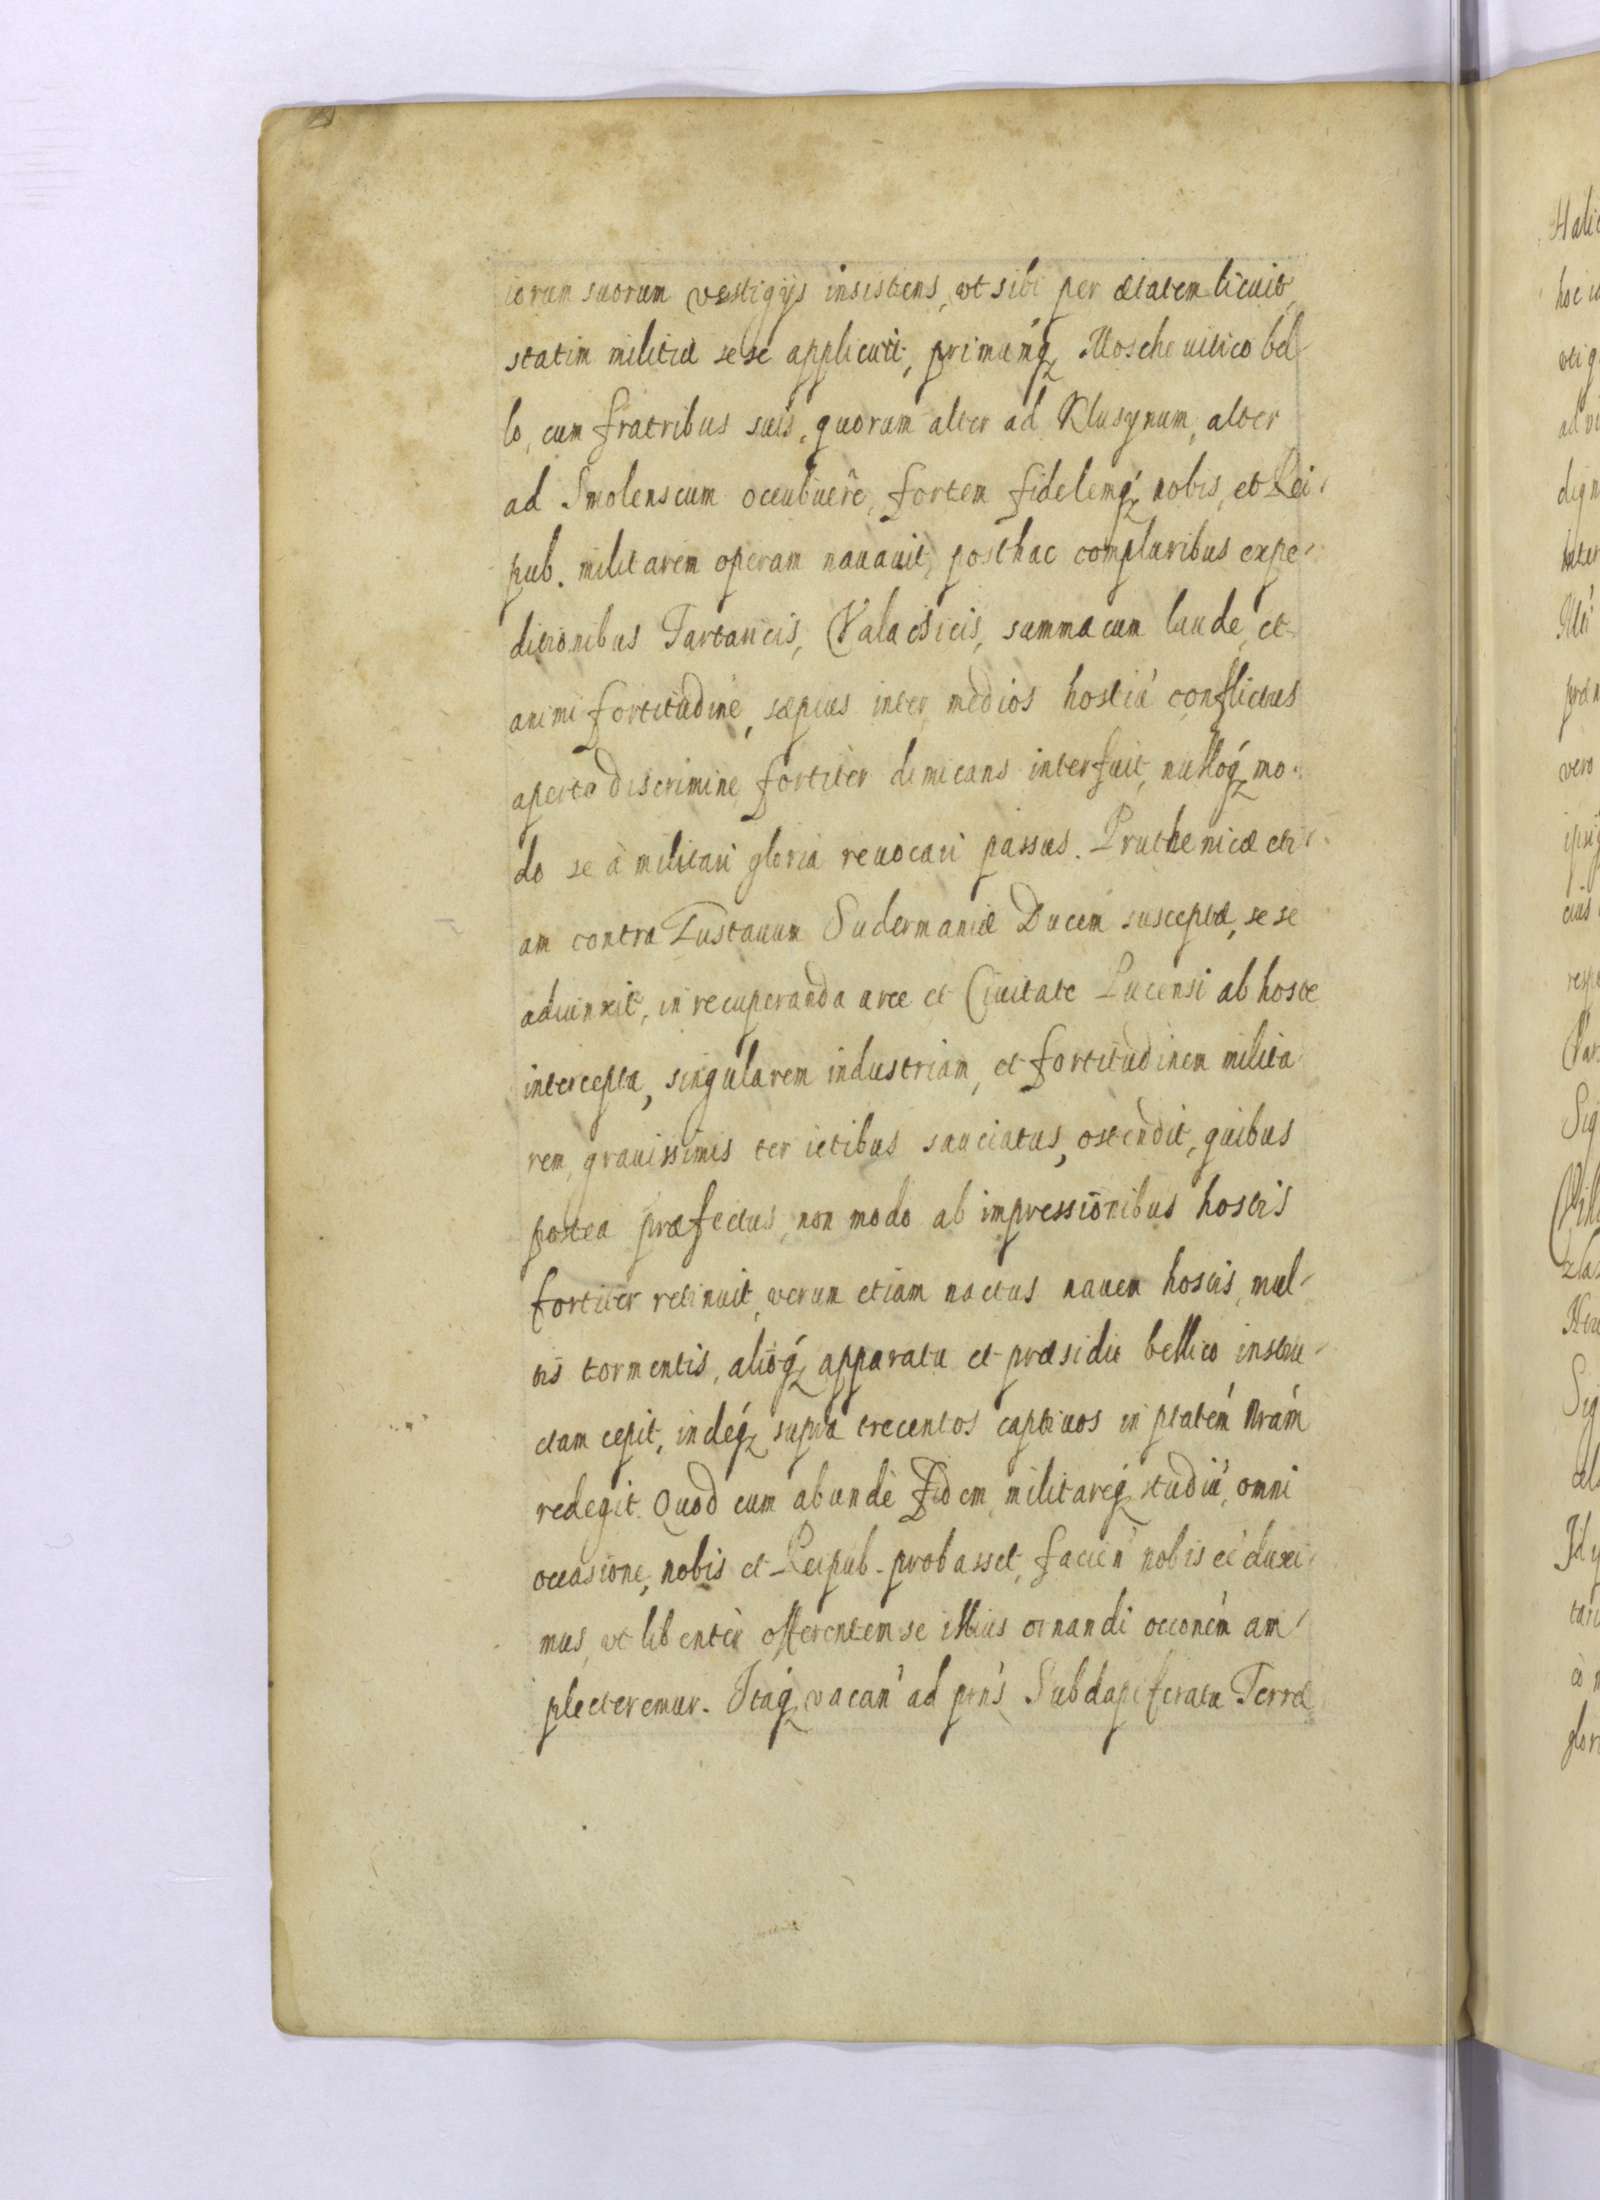 iorum suorum vestigijs insistens, vt sibi per ætatem licuit,
statim militiæ sese applicuit, primúmq Moschouitico bel-
lo, cum fratribus suis, quorum alter ad Klusynum, alter
ad Smolenscum occubuêre, fortem fidelemq́ nobis, et Rei-
pub. militarem operam nauauit, posthac compluribus expe-
ditionibus Tartaricis, Valachicis, summa cum laude, et
animi fortitudine, sæpius inter medios hostiú conflictus
aperto discrimine fortiter dimicans interfuit, nulloq́ mo-
do se à militari gloria reuocari passus. Pruthenicæ eti-
am contra Gustauum Sudermaniæ Ducem susceptæ, sese
adiunxit, in recuperanda arce et Ciuitate Pucensi ab hoste
intercepta, singularem industriam, et fortitudinem milita
rem, grauissimis ter ictibus sauciatus, ostendit, quibus
postea præfectus, non modo ab impressionibus hostis
fortiter retinuit, verum etiam nactus nauem hostis, mul-
tis tormentis, alioq́ apparatu et præsidio bellico instru-
ctam cepit, indeq́ supra trecentos captiuos in ptateḿ nrám
redegit. Quod cum abundè fidem, militareq́ studiú, omni
occasione, nobis et Reipub. probasset, facien̍ nobis eé duxi-
mus, vt libentèr offerentem se illius ornandi occoneḿ am-
plecteremur. Itaq́ vacan̍ ad prns̍ Subdapiferatu Terræ
Halic
hoc
vtiq
ad vi
dign
inter
præ
vero
ipsiq
eius
resp
Var
Sig
Viln
Sig
Id
tari
glori